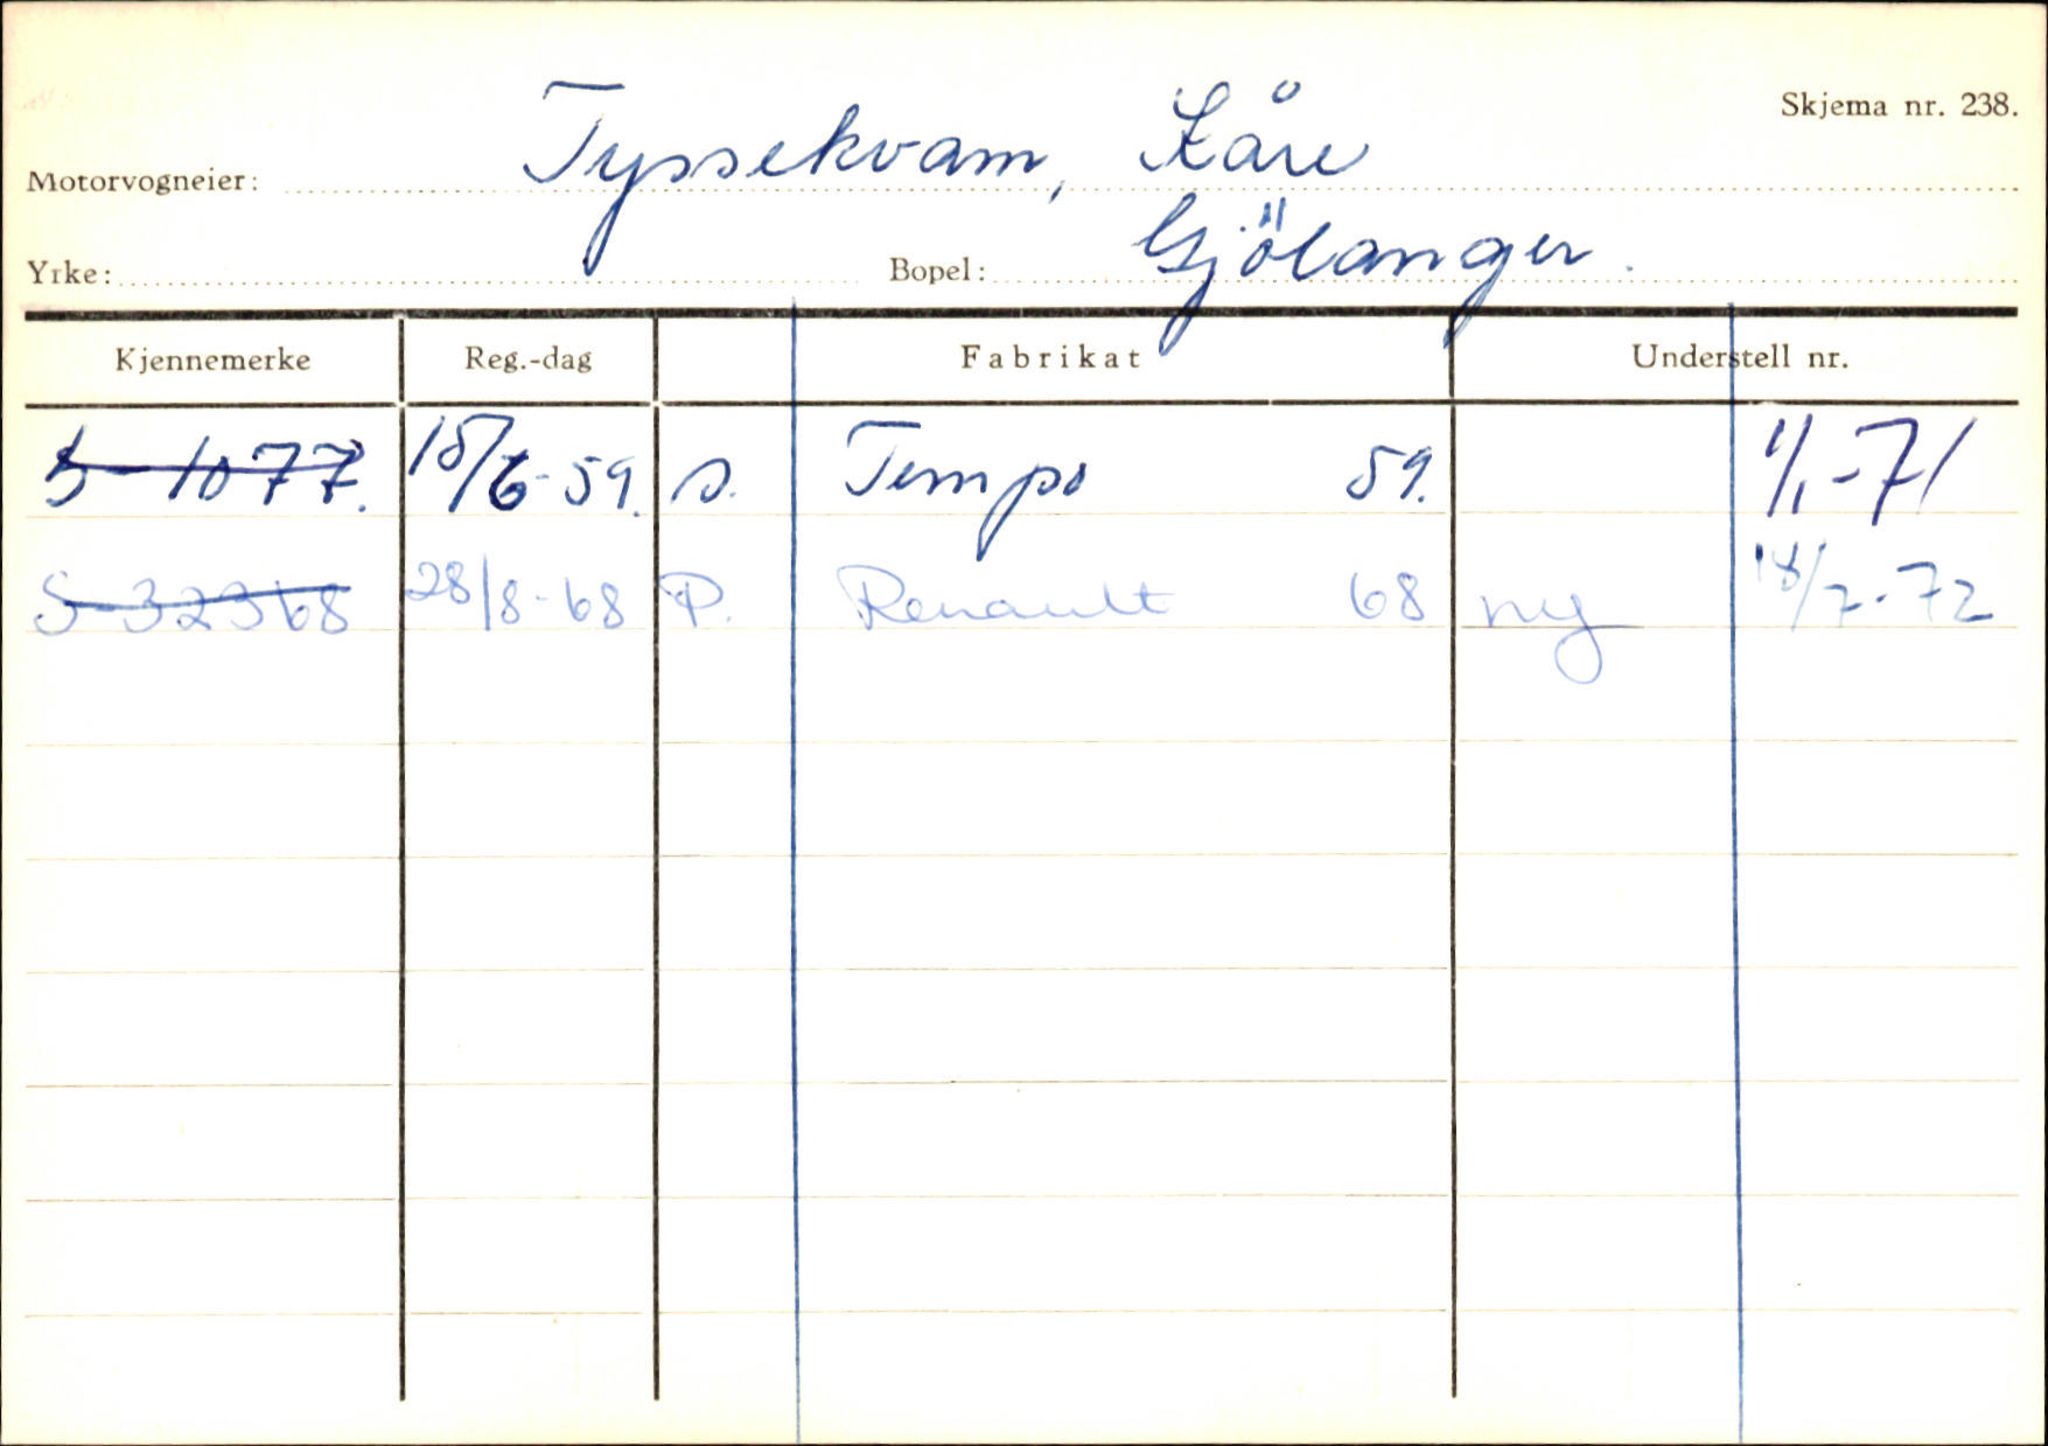 Skjema nr. 238.
Motorvogneier: Tyssekvam, Kåre
Yrke: Bopel: Gjölanger.
Kjennemerke Reg.-dag Fabrikat Understell nr.
S-1077. 18/6-59. s. Tempo 59. 1/1-71
S-32368 28/8-68 P. Renault 68 ny 18/7-72